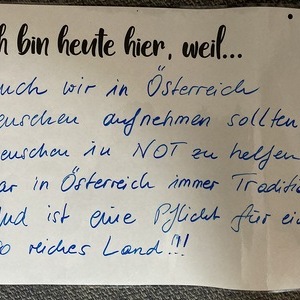 h bin heute hier, weil...
uch wir in Österreich
enschen aufnehmen sollten
enschen in NOT zu helfen
ar in Österreich immer Traditio
nd ist eine Pflicht für ein
so reiches Land!!!